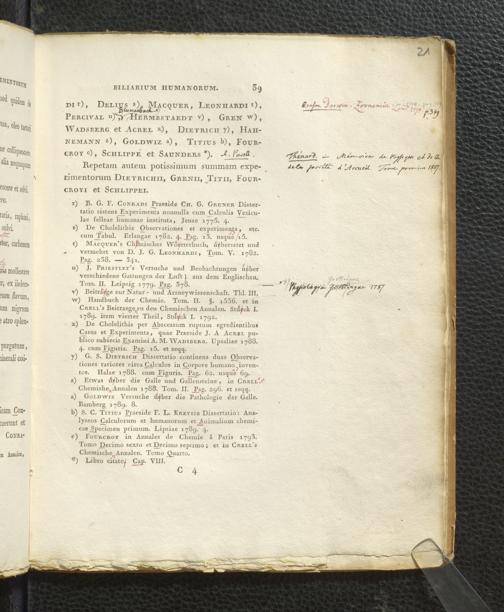 21
BILIARIUM HUMANORUM. 39
DI r), DELIUS s), MACQUER, LEONHARDI t),
PERCIVAL u), HERMBSTAEDT v), GREN w),
WADSBERG et ACREL x), DIETRICH y), HAH-
NEMANN z), GOLDWIZ a), TITIUS b), FOUR-
CROY c), SCHLIPPE et SAUNDERS
Repetam autem potissimum summam expe-
rimentorum DIETRICHII, GRENII, TITII, FOUR-
CROYI et SCHLIPPEI.
r) B. G. F. CONRADI Praeside CH. G. GRUNER Disser-
tatio sistens Experimenta nonnulla cum Calculis Vesicu-
lae felleae humanae instituta, Jenae 1775. 4.
s) De Cholelithis Observationes et experimenta, etc.
cum Tabul. Erlangae 1782. 4. Pag. 13. usque 15.
t) MACQUER's Chimisches Wörterbuch, übersetzt und
vermehrt von D. J. G. LEONHARDI, Tom. V. 1782.
Pag. 238. — 341.
u) J. PRIESTLEY's Versuche und Beobachtungen über
verschiedene Gattungen der Luft; aus dem Englischen,
Tom. II. Leipzig 1779. Pag. 378.
v) Beiträge zur Natur- und Arzneywissenschaft. Thl. III.
w) Handbuch der Chemie. Tom. II. §. 1536. et in
CRELL's Beitraege zu den Chemischen Annalen.
1789. item vierter Theil, Stück I. 1792.
x) De Cholelithis per Abscessum ruptum egredientibus
Casus et Experimenta, quae Praeside J. A ACREL pu-
blico subjecit Examini A. M. WADSBERG. Upsaliae 1788.
4. cum Figuris. Pag. 15. et seqq.
y) G. S. DIETRICH Dissertatio continens duas Observa-
tiones rariores circa Calculos in Corpore humano inven-
tos. Halae 1788. cum Figuris. Pag. 62. usque 69.
z) Etwas über die Galle und Gallensteine, in CRELL's
Chemische Annalen 1788. Tom. II. Pag. 296. et seqq.
a) GOLDWIZ Versuche über die Pathologie der Galle.
Bamberg 1789. 8.
b) S. C. TITIUS Praeside F. L. KREYSIG Dissertatio: Ana-
lyseos Calculorum et humanorum et Animalium chemi-
cae Specimen primum. Lipsiae 1789. 4.
c) FOURCROY in Annales de Chemie à Paris 1793.
Tomo Decimo sexto et Decimo septimo; et in CRELL's
Chemische Annalen. Tomo Quarto.
Libro citato, Cap. VIII.
C 4
Thénard in Mémoires de Physique et de Ch.
de la société d'Arcueil Tome premier 1807.